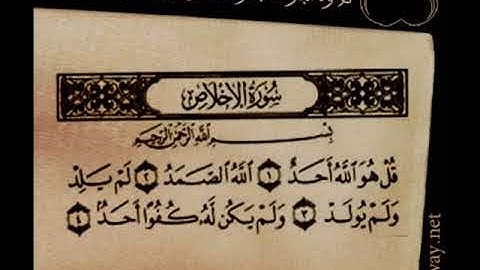 سُورَةُ الإِخْلَاصِ
بِسْمِ اللَّهِ الرَّحْمَٰنِ الرَّحِيمِ
قُلْ هُوَ اللَّهُ أَحَدٌ ١ اللَّهُ الصَّمَدُ ٢ لَمْ يَلِدْ
وَلَمْ يُولَدْ ٣ وَلَمْ يَكُن لَّهُ كُفُوًا أَحَدٌ ٤
way.net